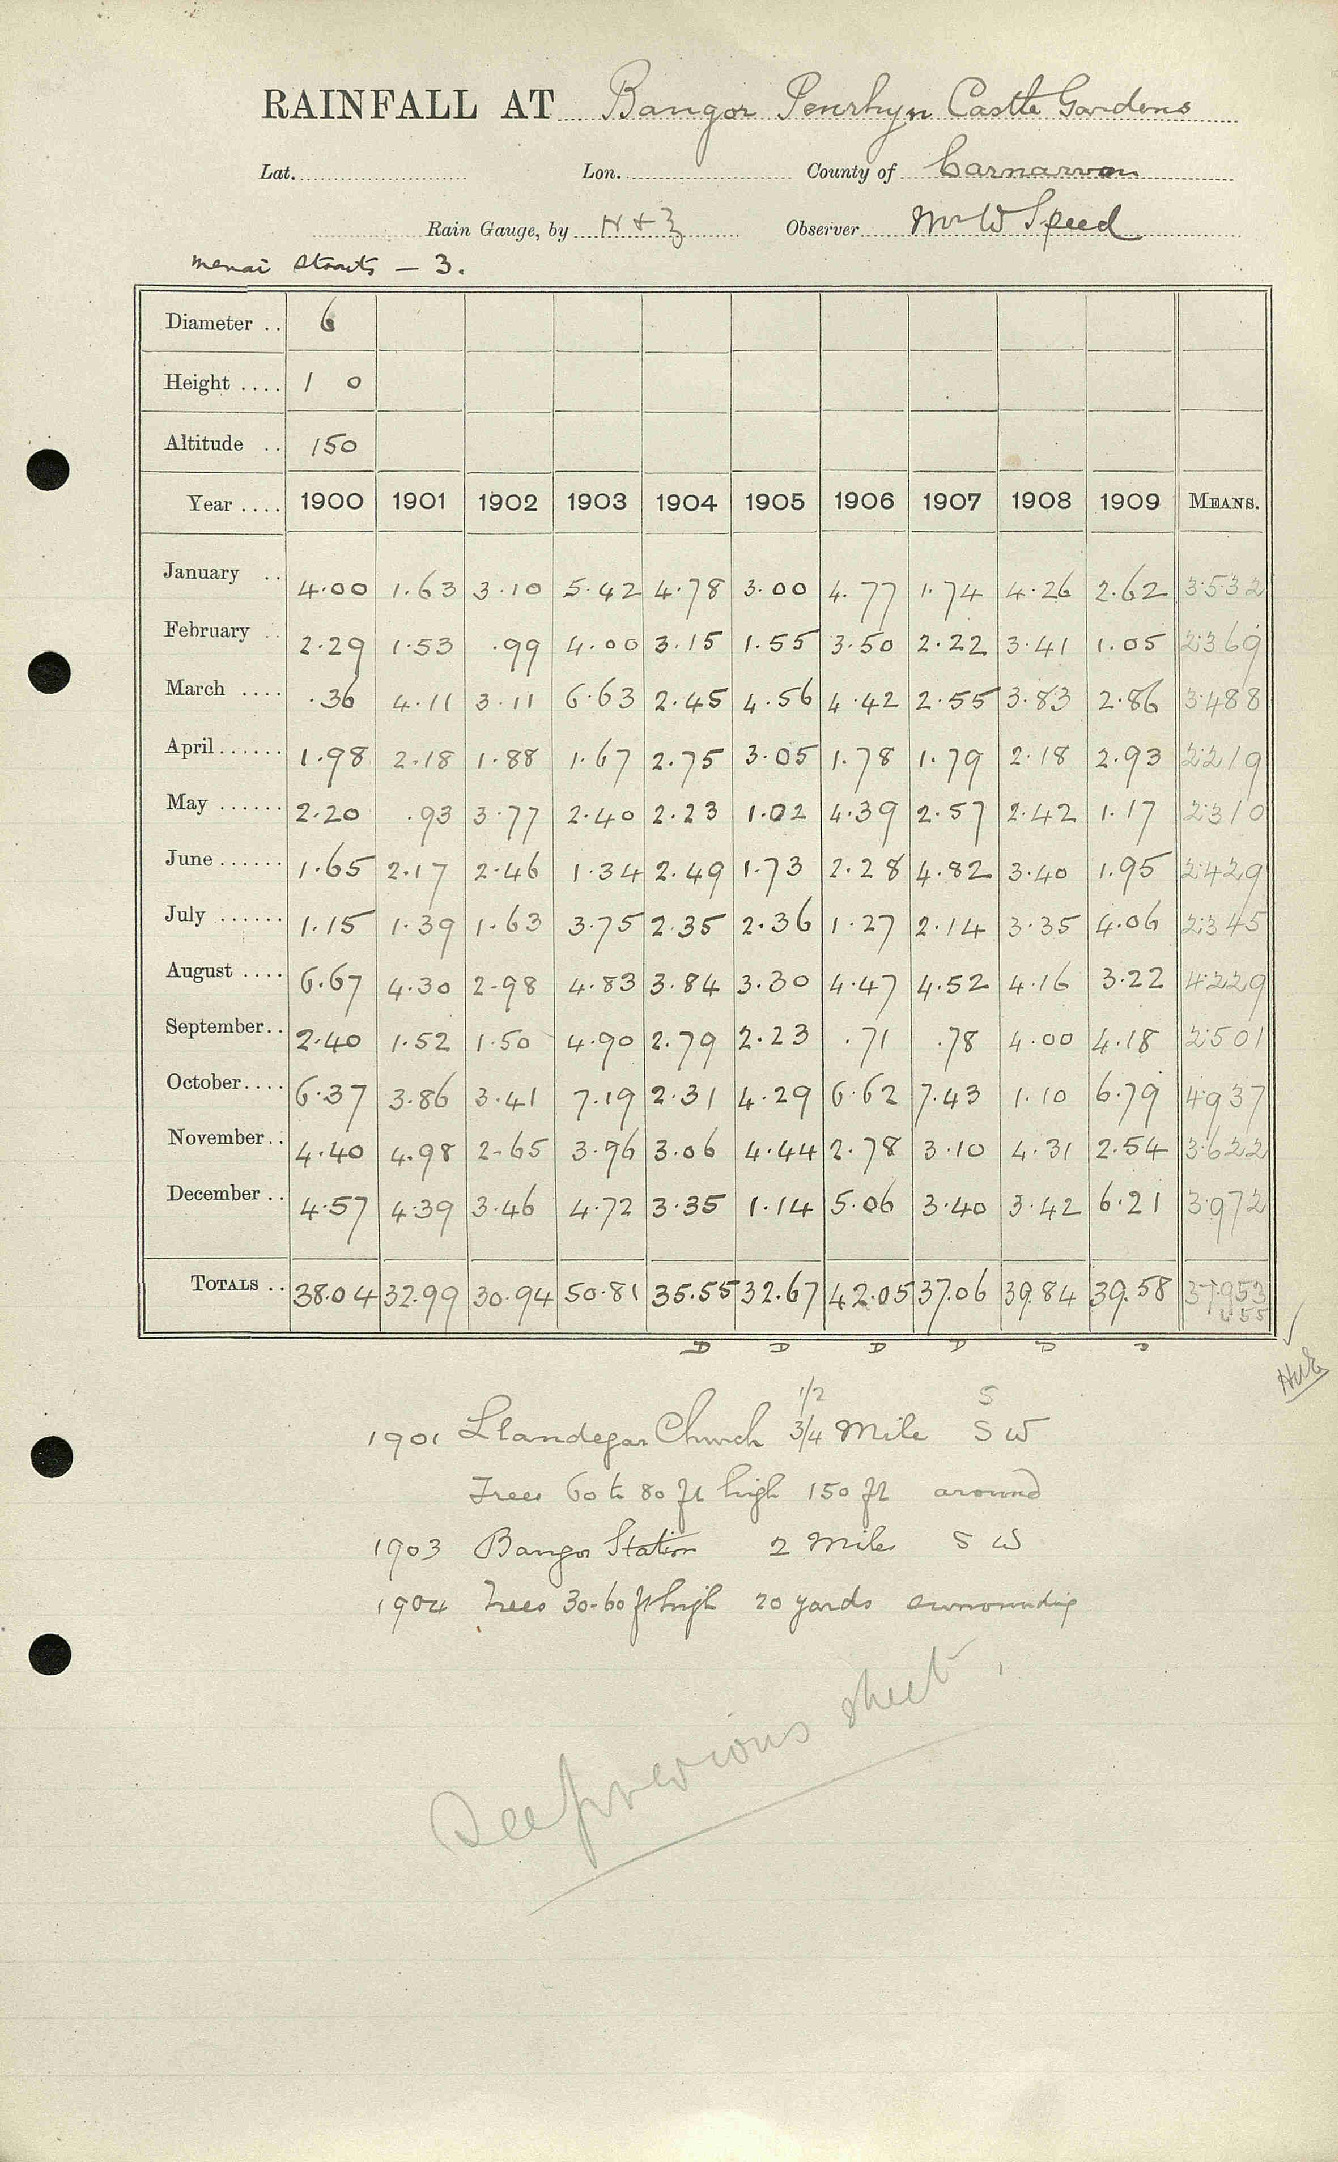 RAINFALL AT Bangor Penrhyn Castle Gardens
Lat. Lon. County of Carnarvon
Rain Gauge, by N + Z Observer Mr W Speed
Menai Straits — 3.
Diameter .. 6
Height .... 1 0
Altitude .. 150
Year .... 1900 1901 1902 1903 1904 1905 1906 1907 1908 1909 MEANS.
January .. 4.00 1.63 3.10 5.42 4.78 3.00 4.77 1.74 4.26 2.62 3.532
February .. 2.29 1.53 .99 4.00 3.15 1.55 3.50 2.22 3.41 1.05 2.369
March .... .36 4.11 3.11 6.63 2.45 4.56 4.42 2.55 3.83 2.86 3.488
April ...... 1.98 2.18 1.88 1.67 2.75 3.05 1.78 1.79 2.18 2.93 2.219
May ...... 2.20 .93 3.77 2.40 2.23 1.02 4.39 2.57 2.42 1.17 2.310
June ...... 1.65 2.17 2.46 1.34 2.49 1.73 2.28 4.82 3.40 1.95 2.429
July ...... 1.15 1.39 1.63 3.75 2.35 2.36 1.27 2.14 3.35 4.06 2.345
August .... 6.67 4.30 2.98 4.83 3.84 3.30 4.47 4.52 4.16 3.22 4.229
September .. 2.40 1.52 1.50 4.90 2.79 2.23 .71 .78 4.00 4.18 2.501
October .... 6.37 3.86 3.41 7.19 2.31 4.29 6.62 7.43 1.10 6.79 4.937
November .. 4.40 4.98 2.65 3.96 3.06 4.44 2.78 3.10 4.31 2.54 3.622
December .. 4.57 4.39 3.46 4.72 3.35 1.14 5.06 3.40 3.42 6.21 3.972
TOTALS .. 38.04 32.99 30.94 50.81 35.55 32.67 42.05 37.06 39.84 39.58 37.953
D D D D D D
1/2 S
1901 Llandegai Church 3/4 Mile S W
Trees 60 to 80 ft high 150 ft around
1903 Bangor Station 2 Mile S W
1904 Trees 30-60 ft high 20 yards surrounding
See previous sheet.